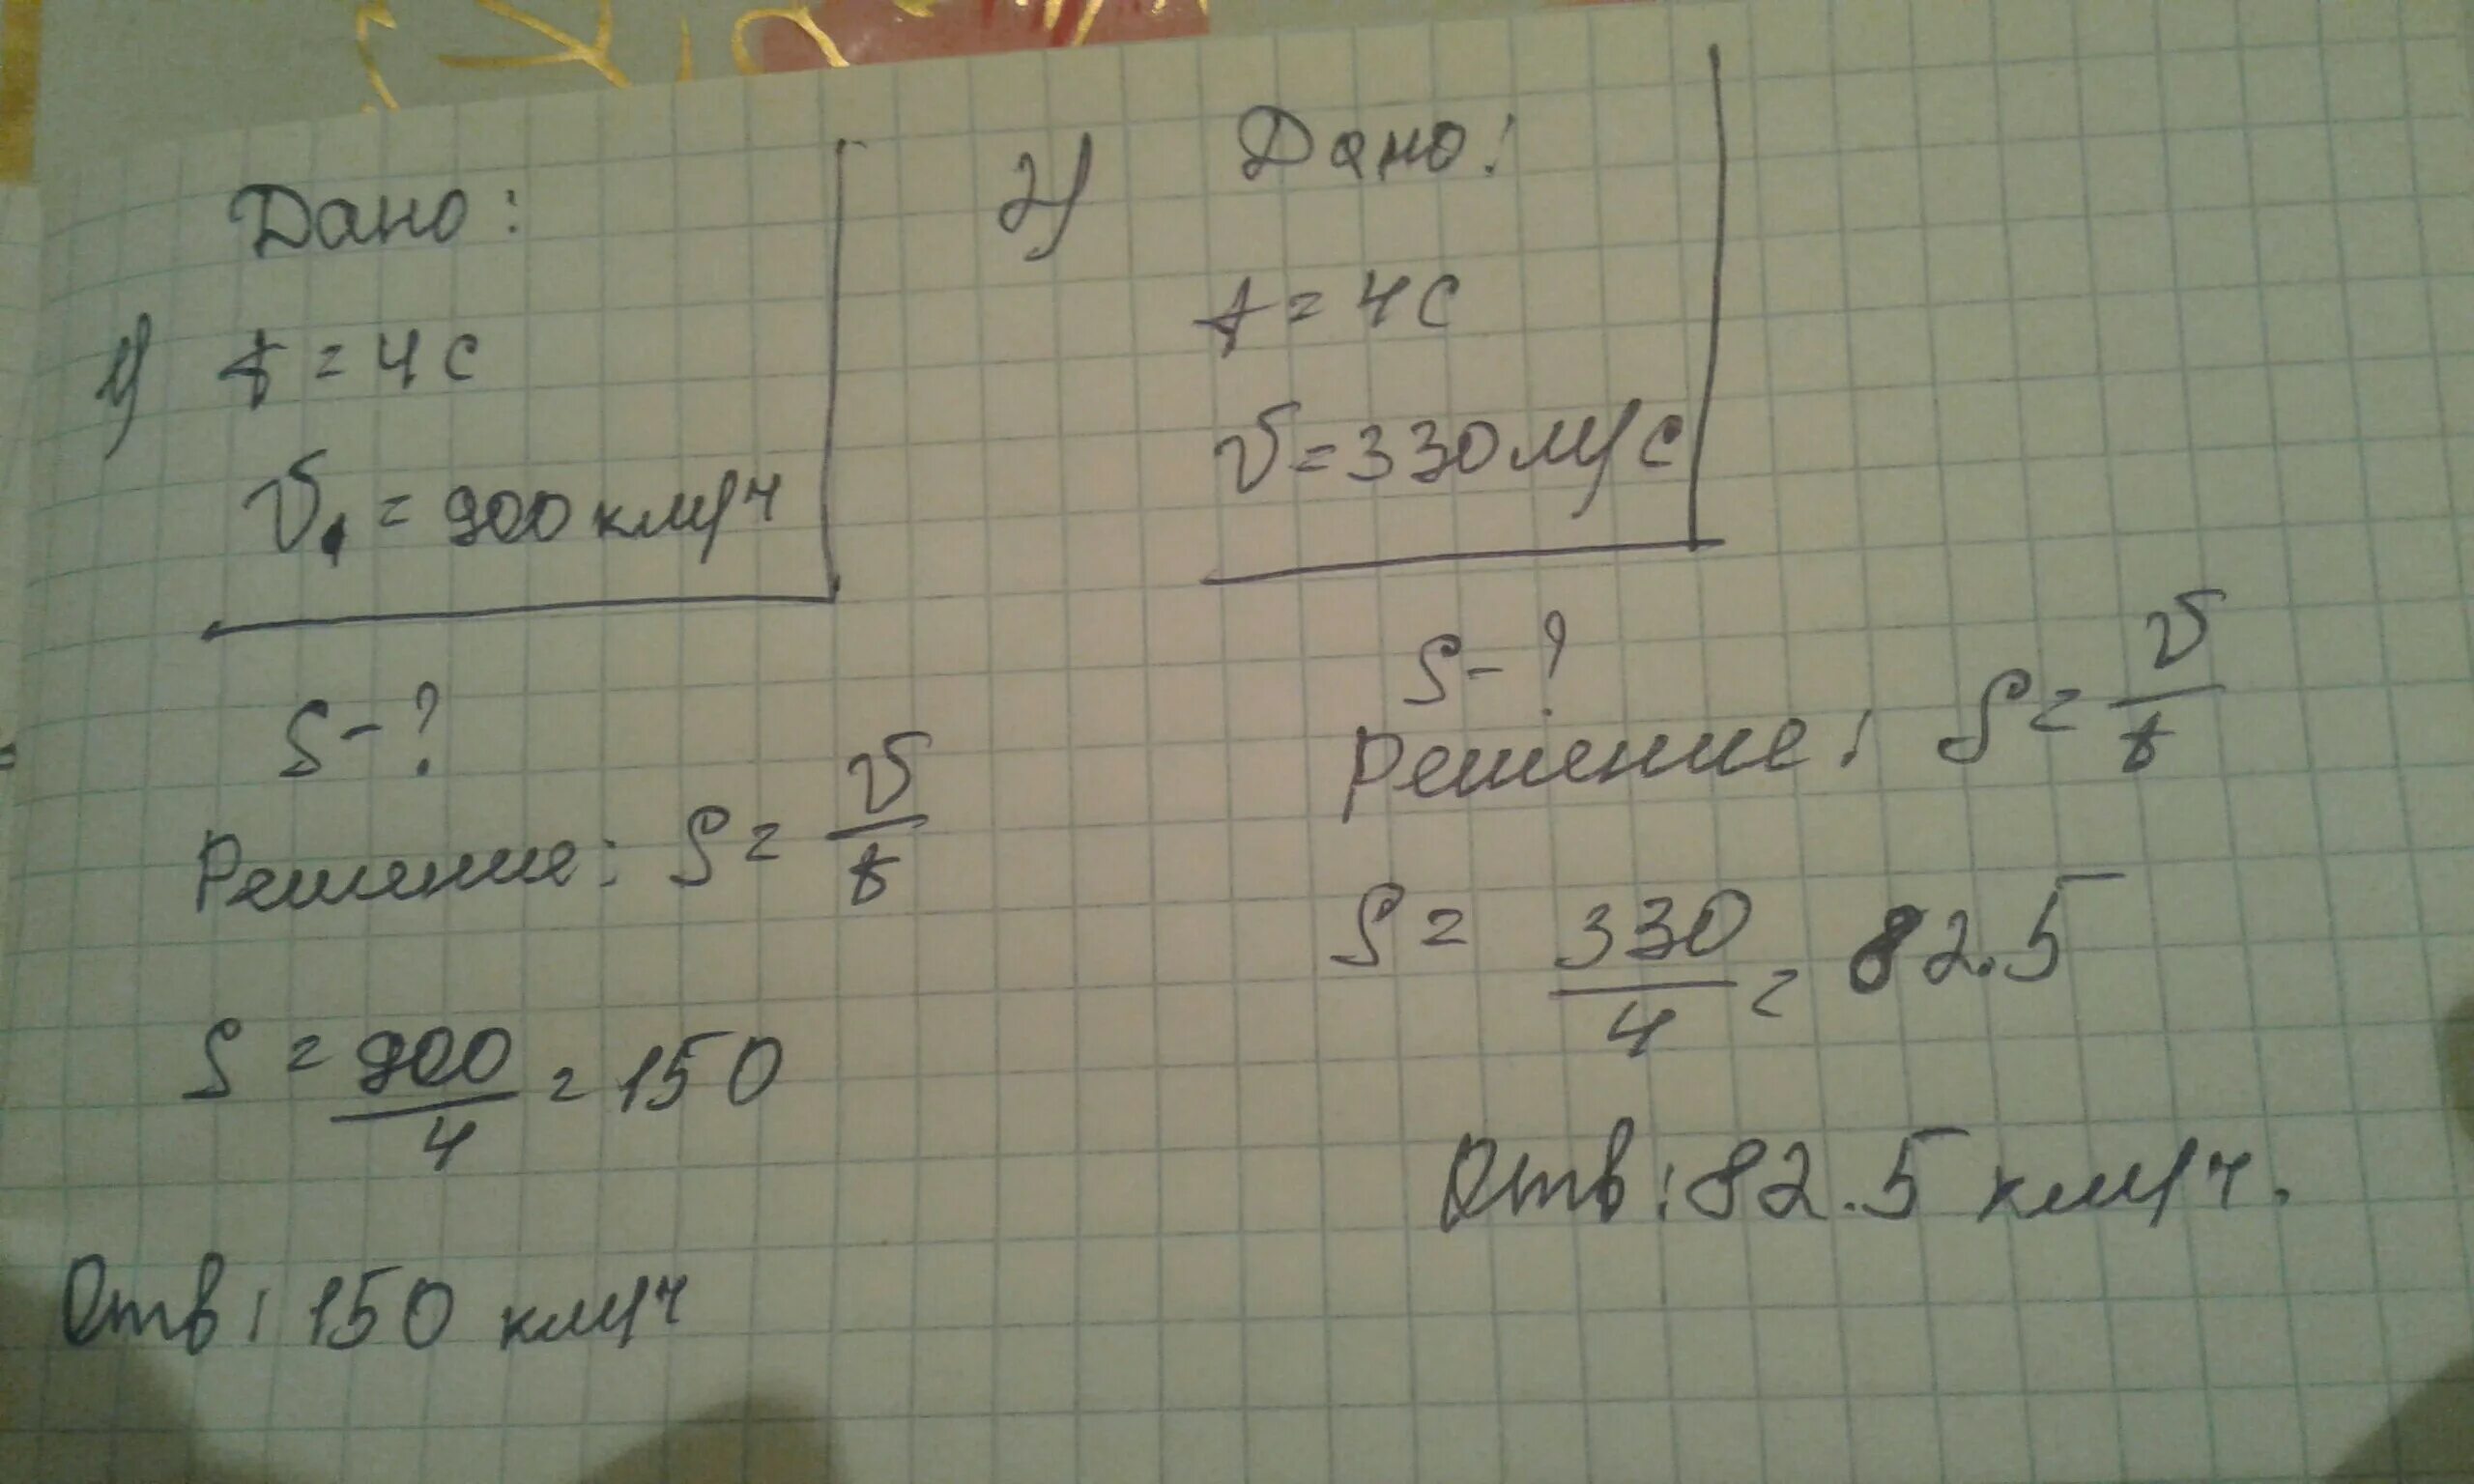 Дано:
1) t = 4 с
V₁ = 900 км/ч
S - ?
Решение: S = V/t
S = 900/4 = 150
Отв: 150 км/ч
2) Дано:
t = 4 с
V = 330 м/с
S - ?
Решение: S = V/t
S = 330/4 = 82.5
Отв: 82.5 км/ч.